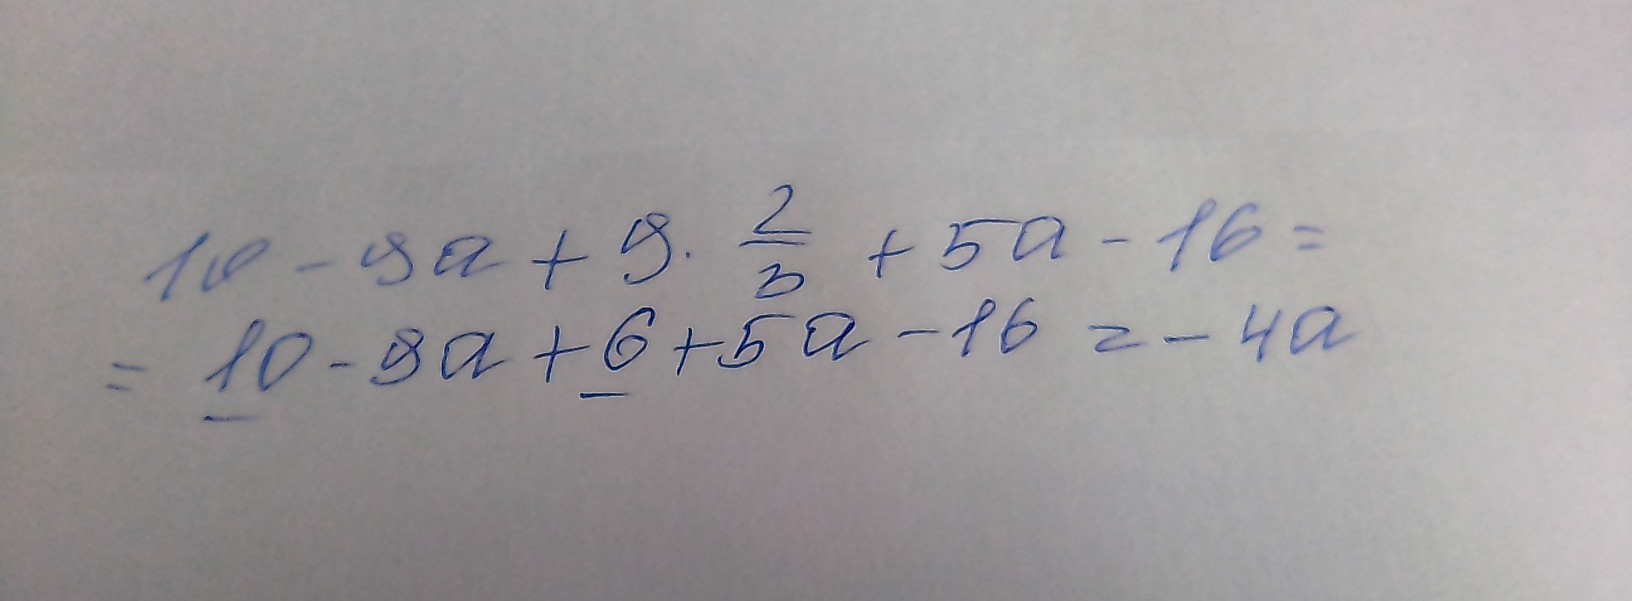 10 - 9a + 9 · 2/3 + 5a - 16 =
= 10 - 9a + 6 + 5a - 16 = - 4a